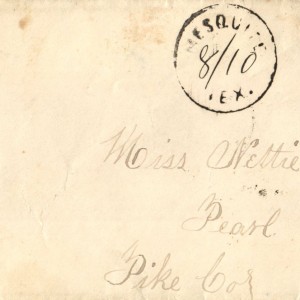 MESQUITE
8/10
. EX.
Miss Nettie
Pearl
Pike Co,